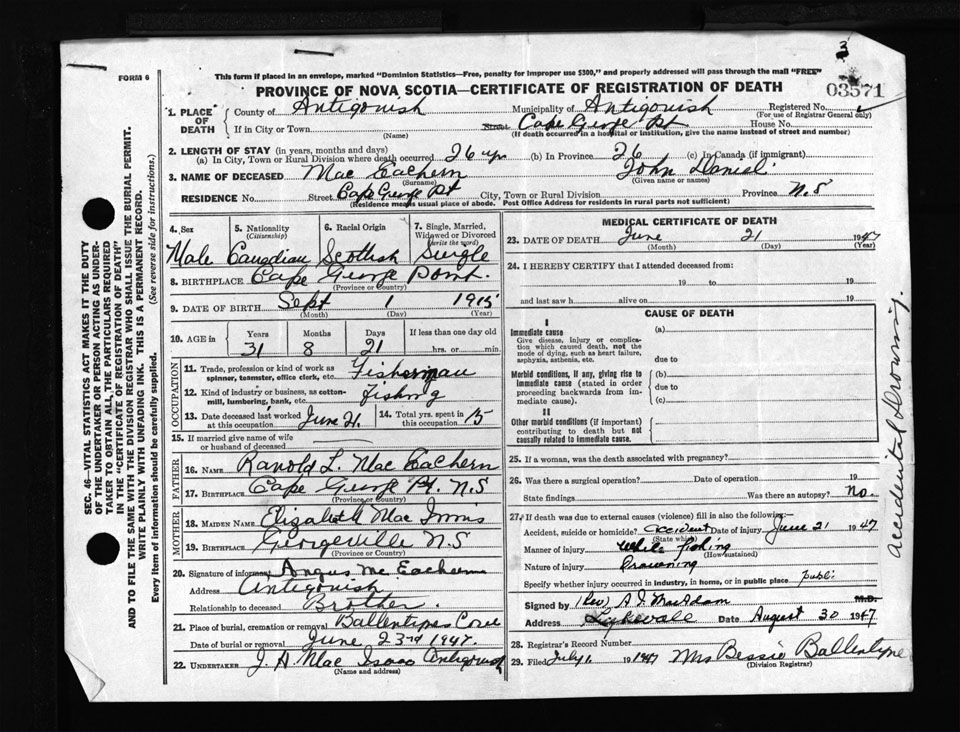 3
FORM 6
This form if placed in an envelope, marked "Dominion Statistics—Free, penalty for improper use $300," and properly addressed will pass through the mail "FREE"
PROVINCE OF NOVA SCOTIA—CERTIFICATE OF REGISTRATION OF DEATH
03571
1. PLACE OF DEATH County of Antigonish Municipality of Antigonish Registered No.
(For use of Registrar General only)
If in City or Town (Name) Street Cape George Pt House No.
(If death occurred in a hospital or institution, give the name instead of street and number)
2. LENGTH OF STAY (in years, months and days)
(a) In City, Town or Rural Division where death occurred 26 yrs (b) In Province 26 (c) In Canada (if immigrant)
3. NAME OF DECEASED Mac Eachern John Daniel
(Surname) (Given name or names)
RESIDENCE No. Street Cape George Pt City, Town or Rural Division Province N.S
(Residence means usual place of abode. Post Office Address for residents in rural parts not sufficient)
4. Sex 5. Nationality (Citizenship) 6. Racial Origin 7. Single, Married, Widowed or Divorced (write the word)
Male Canadian Scottish Single
8. BIRTHPLACE Cape George Point
(Province or Country)
9. DATE OF BIRTH Sept 1 1915
(Month) (Day) (Year)
10. AGE in Years Months Days If less than one day old
31 8 21 hrs. or min.
OCCUPATION
11. Trade, profession or kind of work as spinner, teamster, office clerk, etc. Fisherman
12. Kind of industry or business, as cotton-mill, lumbering, bank, etc. Fishing
13. Date deceased last worked at this occupation June 21 14. Total yrs. spent in this occupation 15
15. If married give name of wife or husband of deceased
FATHER
16. NAME Ranold L. Mac Eachern
17. BIRTHPLACE Cape George Pt. N.S
(Province or Country)
MOTHER
18. MAIDEN NAME Elizabeth Mac Innis
19. BIRTHPLACE Georgeville N.S
(Province or Country)
20. Signature of informant Angus Mc Eachern
Address Antigonish
Relationship to deceased Brother.
21. Place of burial, cremation or removal Ballentines Cove
Date of burial or removal June 23rd 1947.
22. UNDERTAKER J. A. Mac Isaac Antigonish
(Name and address)
MEDICAL CERTIFICATE OF DEATH
23. DATE OF DEATH June 21 1947
(Month) (Day) (Year)
24. I HEREBY CERTIFY that I attended deceased from:
19 to 19
and last saw h alive on 19
CAUSE OF DEATH
I
Immediate cause (a)
Give disease, injury or complication which caused death, not the mode of dying, such as heart failure, asphyxia, asthenia, etc. due to
Morbid conditions, if any, giving rise to immediate cause (stated in order proceeding backwards from immediate cause). (b)
due to
(c)
II
Other morbid conditions (if important) contributing to death but not causally related to immediate cause.
25. If a woman, was the death associated with pregnancy?
26. Was there a surgical operation? Date of operation 19
State findings Was there an autopsy? No.
27. If death was due to external causes (violence) fill in also the following:
Accident, suicide or homicide? accident Date of injury June 21 1947
(State which)
Manner of injury While fishing
(How sustained)
Nature of injury Drowning
Specify whether injury occurred in industry, in homes, or in public place public
Signed by (Rev) M.D.
Address Lakevale Date August 30 1947
28. Registrar's Record Number
29. Filed July 1. 1947 Mrs Bessie Ballentyne
(Division Registrar)
Accidental Drowning.
SEC. 46—VITAL STATISTICS ACT MAKES IT THE DUTY
OF THE UNDERTAKER OR PERSON ACTING AS UNDER-
TAKER TO OBTAIN ALL THE PARTICULARS REQUIRED
IN THE "CERTIFICATE OF REGISTRATION OF DEATH"
AND TO FILE THE SAME WITH THE DIVISION REGISTRAR WHO SHALL ISSUE THE BURIAL PERMIT.
WRITE PLAINLY WITH UNFADING INK. THIS IS A PERMANENT RECORD.
Every item of information should be carefully supplied. (See reverse side for instructions.)